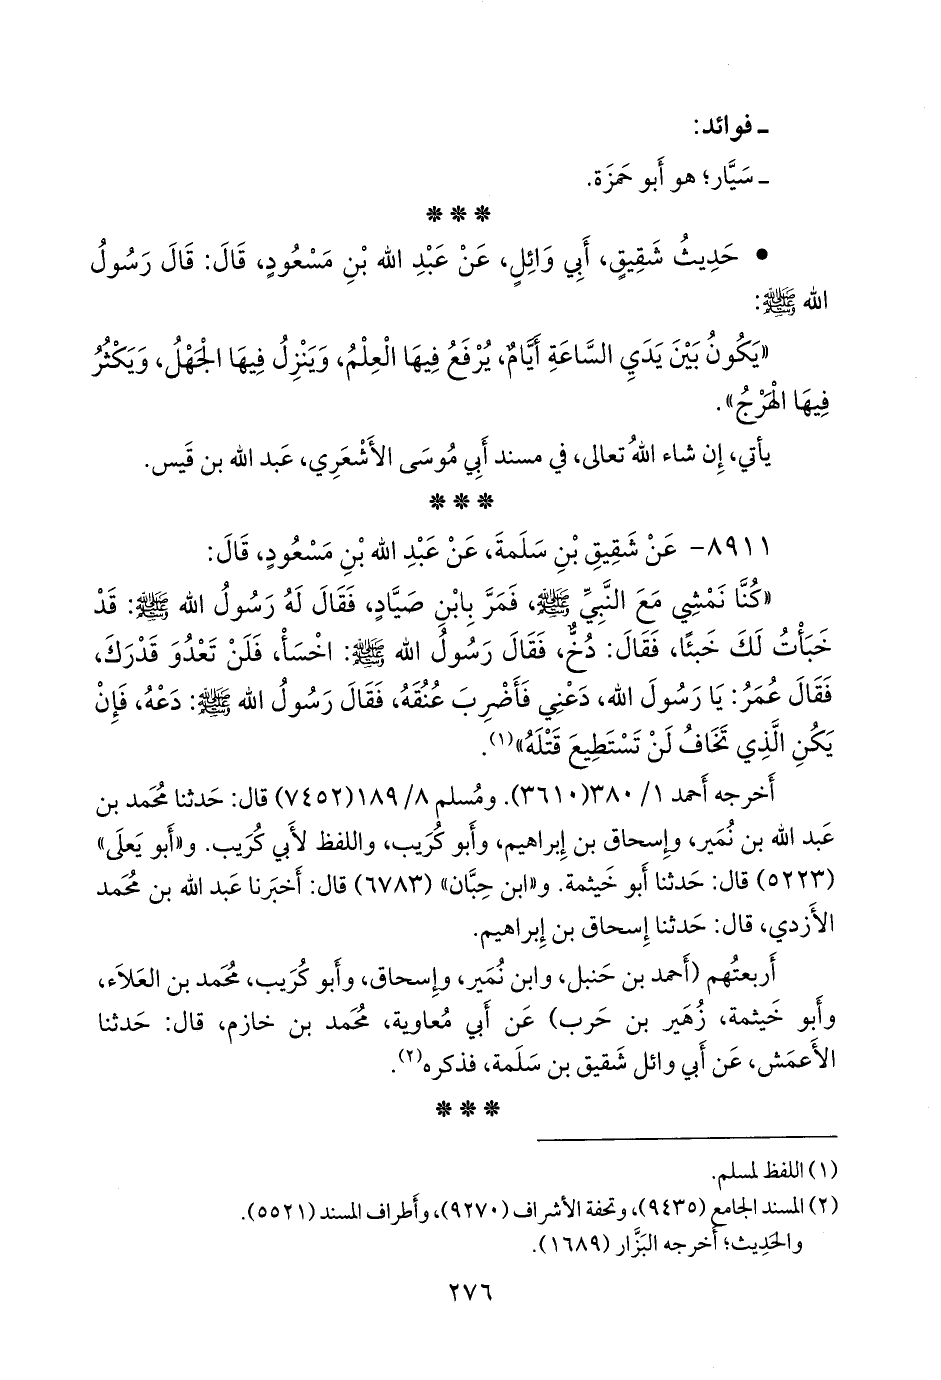 ـ فوائد:
ـ سَيَّار؛ هو أَبو حَمزَة.
* * *
• حَدِيثُ شَقِيقٍ، أَبِي وَائِلٍ، عَنْ عَبْدِ الله بْنِ مَسْعُودٍ، قَالَ: قَالَ رَسُولُ
الله ﷺ:
«يَكُونُ بَيْنَ يَدَيِ السَّاعَةِ أَيَّامٌ، يُرْفَعُ فِيهَا الْعِلْمُ، وَيَنْزِلُ فِيهَا الْجَهْلُ، وَيَكْثُرُ
فِيهَا الْهَرْجُ».
يأتي، إِن شاء اللهُ تعالى، في مسند أَبِي مُوسَى الأَشْعَرِي، عَبد الله بن قَيس.
* * *
٨٩١١- عَنْ شَقِيقِ بْنِ سَلَمةَ، عَنْ عَبْدِ الله بْنِ مَسْعُودٍ، قَالَ:
«كُنَّا نَمْشِي مَعَ النَّبِيِّ ﷺ، فَمَرَّ بِابْنِ صَيَّادٍ، فَقَالَ لَهُ رَسُولُ الله ﷺ: قَدْ
خَبَأْتُ لَكَ خَبئًا، فَقَالَ: دُخٌّ، فَقَالَ رَسُولُ الله ﷺ: اخْسَأْ، فَلَنْ تَعْدُوَ قَدْرَكَ،
فَقَالَ عُمَرُ: يَا رَسُولَ الله، دَعْنِي فَأَضْرِبَ عُنُقَهُ، فَقَالَ رَسُولُ الله ﷺ: دَعْهُ، فَإِنْ
يَكُنِ الَّذِي تَخَافُ لَنْ تَسْتَطِيعَ قَتْلَهُ»(١).
أَخرجه أَحمد ١/ ٣٨٠(٣٦١٠). ومُسلم ٨/ ١٨٩(٧٤٥٢) قال: حَدثنا مُحمد بن
عَبد الله بن نُمَير، وإِسحاق بن إِبراهيم، وأَبو كُرَيب، واللفظ لأَبي كُرَيب. و«أَبو يَعلَى»
(٥٢٢٣) قال: حَدثنا أَبو خَيثمة. و«ابن حِبَّان» (٦٧٨٣) قال: أَخبَرنا عَبد الله بن مُحمد
الأَزدي، قال: حَدثنا إِسحاق بن إِبراهيم.
أَربعتُهم (أَحمد بن حَنبل، وابن نُمَير، وإِسحاق، وأَبو كُرَيب، مُحمد بن العَلاَء،
وأَبو خَيثمة، زُهَير بن حَرب) عَن أَبي مُعاوية، مُحمد بن خازم، قال: حَدثنا
الأَعمَش، عَن أَبي وائل شَقيق بن سَلَمة، فذكره(٢).
* * *
(١) اللفظ لمسلم.
(٢) المسند الجامع (٩٤٣٥)، وتحفة الأشراف (٩٢٧٠)، وأَطراف المسند (٥٥٢١).
والحَدِيث؛ أَخرجه البَزَّار (١٦٨٩).
٢٧٦